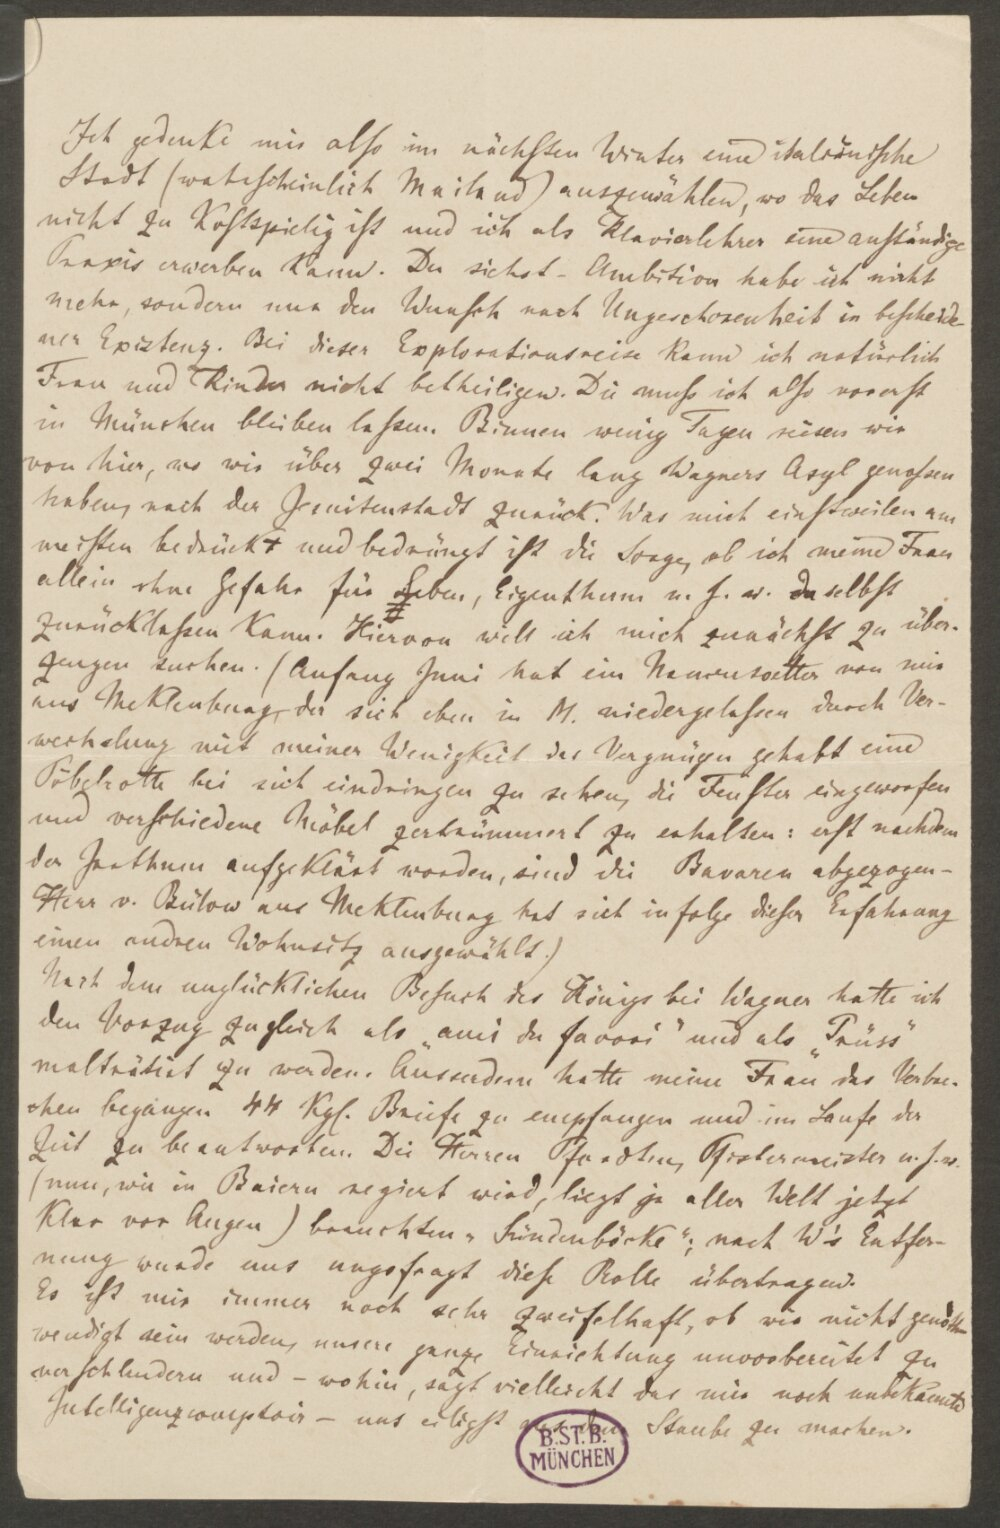 Ich gedenke mir also im nächsten Winter eine italiänische
Stadt (wahrscheinlich Mailand) auszuwählen, wo das Leben
nicht zu kostspielig ist und ich als Klavierlehrer eine anständige
Praxis erwerben kann. Du siehst – Ambition habe ich nicht
mehr, sondern nur den Wunsch nach Ungeschorenheit in bescheide-
ner Existenz. Bei dieser Explorationsreise kann ich natürlich
Frau und Kinder nicht betheiligen. Die muß ich also vorerst
in München bleiben lassen. Binnen wenig Tagen reisen wir
von hier, wo wir über zwei Monate lang Wagners Asyl genossen
haben, nach der Isauitenstadt zurück. Was mich einstweilen am
meisten bedrückt und bedrängt ist die Sorge, ob ich meine Frau
allein ohne Gefahr für Leben, Eigenthum u. s. w. daselbst
zurücklassen kann. Hiervon will ich mich zunächst zu über-
zeugen suchen. (Anfang Juni hat ein Namensvetter von mir
aus Meklenburg, der sich eben in M. niedergelassen durch Ver-
wechslung mit meiner Wenigkeit das Vergnügen gehabt eine
Pöbelrotte bei sich eindringen zu sehen, die Fenster eingeworfen
und verschiedene Möbel zertrümmert zu erhalten: erst nachdem
der Irrthum aufgeklärt worden, sind die Bavaren abgezogen –
Herr v. Bülow aus Meklenburg hat sich infolge dieser Erfahrung
einen andren Wohnsitz ausgewählt.)
Nach dem unglücklichen Besuch des Königs bei Wagner hatte ich
den Vorzug zugleich als „ami du favori“ und als „Prüss“
malträtirt zu werden. Ausserdem hatte meine Frau das Verbre-
chen begangen 44 Kgl. Briefe zu empfangen und im Laufe der
Zeit zu beantworten. Die Herren Pfordten, Pfistermeister u. s. w.
(nun, wie in Baiern regiert wird, liegt ja aller Welt jetzt
klar vor Augen) brauchten „Sündenböcke“; nach W's Entfer-
nung wurde uns ungefragt diese Rolle übertragen.
Es ist mir immer noch sehr zweifelhaft, ob wir nicht genöth-
wendigt sein werden, unsere ganze Einrichtung unvorbereitet zu
verschleudern und – wohin, sagt vielleicht das mir noch unbekannte
Intelligenzcomptoir – uns eiligst aus dem Staube zu machen.
B.ST.B.
MÜNCHEN